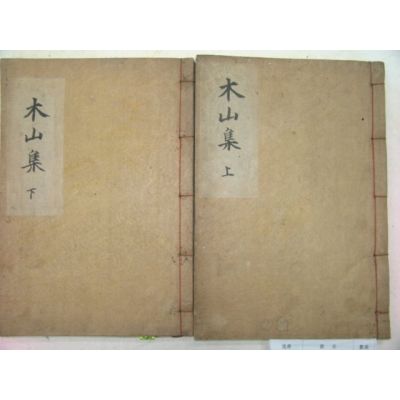 木山集
下
木山集
上